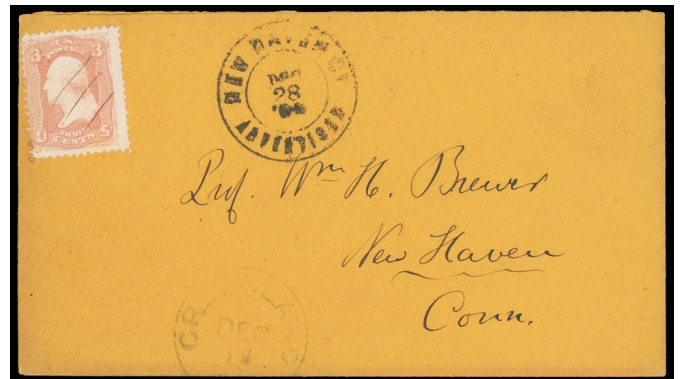 3 U.S. 3
POSTAGE
THREE
U CENTS S
NEW HAVEN CT
DEC
28
ADVERTISED
Prof. Wm H. Brewer
New Haven
Conn.
DEC